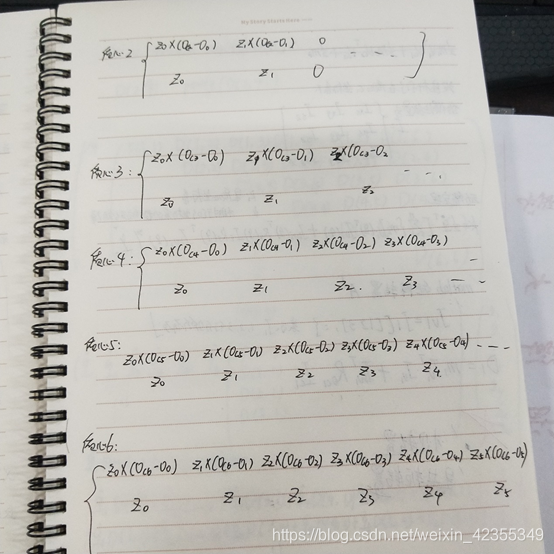 质心2 { Z0×(Oc2-O0) Z1×(Oc2-O1) 0 ---- }
Z0 Z1 0
质心3: { Z0×(Oc3-O0) Z1×(Oc3-O1) Z2×(Oc3-O2 ----
Z0 Z1 Z2
质心4: { Z0×(Oc4-O0) Z1×(Oc4-O1) Z2×(Oc4-O2) Z3×(Oc4-O3) --
Z0 Z1 Z2. Z3 --
质心5:
Z0×(Oc5-O0) Z1×(Oc5-O1) Z2×(Oc5-O2) Z3×(Oc5-O3) Z4×(Oc5-O4) ----
Z0 Z1 Z2 Z3 Z4
质心6:
{ Z0×(Oc6-O0) Z1×(Oc6-O1) Z2×(Oc6-O2) Z3×(Oc6-O3) Z4×(Oc6-O4) Z5×(Oc6-O5)
Z0 Z1 Z2 Z3 Z4 Z5
https://blog.csdn.net/weixin_42355349